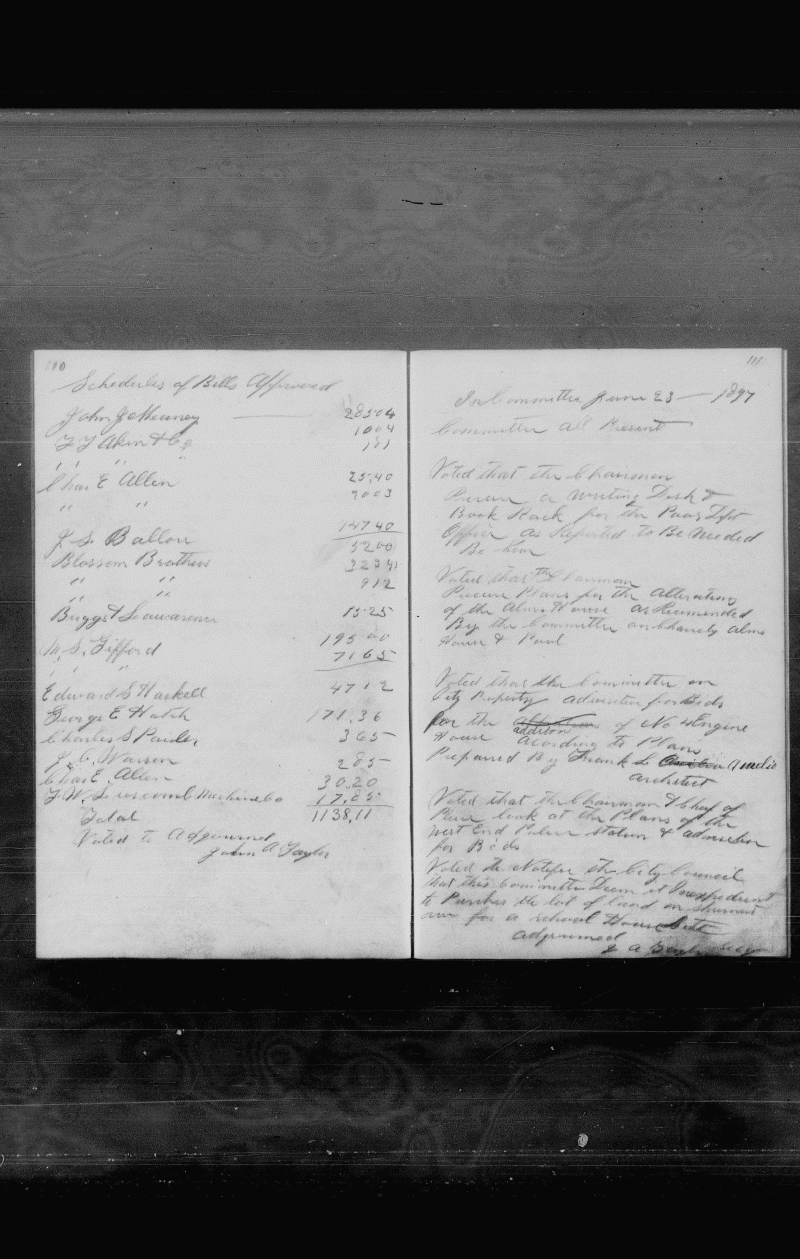 110
Schedules of Bills Approved
John J McKenney 285 04
F F Akin & Co 10 04
" " " 1 81
Chas E Allen 25,40
" " 90 03
J. S. Ballou 147 40
52 00
Blossom Brothers 323 41
" " 9 12
" "
Buggs & Lawrence 15 25
M. S. Gifford 195 00
" " 71 65
Edward S Haskell 47 12
George E Hatch 171,36
Charles S Paisler 3 65
J. C. Warren 2 85
Chas E. Allen 30.20
F. W. Luscomb Machine Co 17.85
Total 1138,11
Voted to Adjourned
John A Taylor
111
In Committee June 23 — 1897
Committee all Present
Voted that the Chairman
Procure a writing Desk &
Book Rack for the Poor Dept
Officer as Reported to Be Needed
Be him
Voted that the Chairman
Procure Plans for the Alterations
of the Alms House as Recomended
By the Committee on Charety Alms
House & Poor
Voted that the Committee on
City Property advertise for Bids
for the addition of No 4 Engine
House acording to Plans
Prepared By Frank L
architect
Voted that the Chairman & Chief of
Police look at the Plans of the
West End Police station & advertise
for Bids
Voted to Notifie the City Council
that this Committee Deem it Inexpedient
to Purches the lot of land on Summit
ave for a school House Site
adjourned